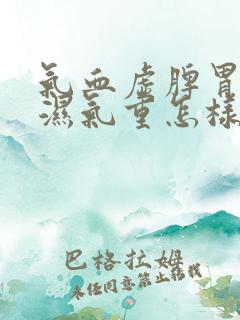 氣血虛脾胃
濕氣重怎樣
巴格拉姆
未经同意禁止转载